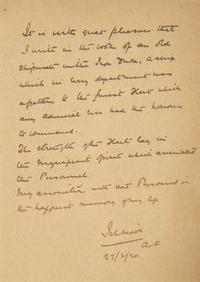 It is with great pleasure that
I write in the book of an old
shipmate in the Iron Duke, a ship
which in every department was
a pattern to the finest Fleet which
any Admiral ever had the honour
to command.
The strength of the Fleet lay in
the magnificent spirit which animated
the Personnel
My association with that Personnel is
the happiest memory of my life
Jellicoe
A.F.